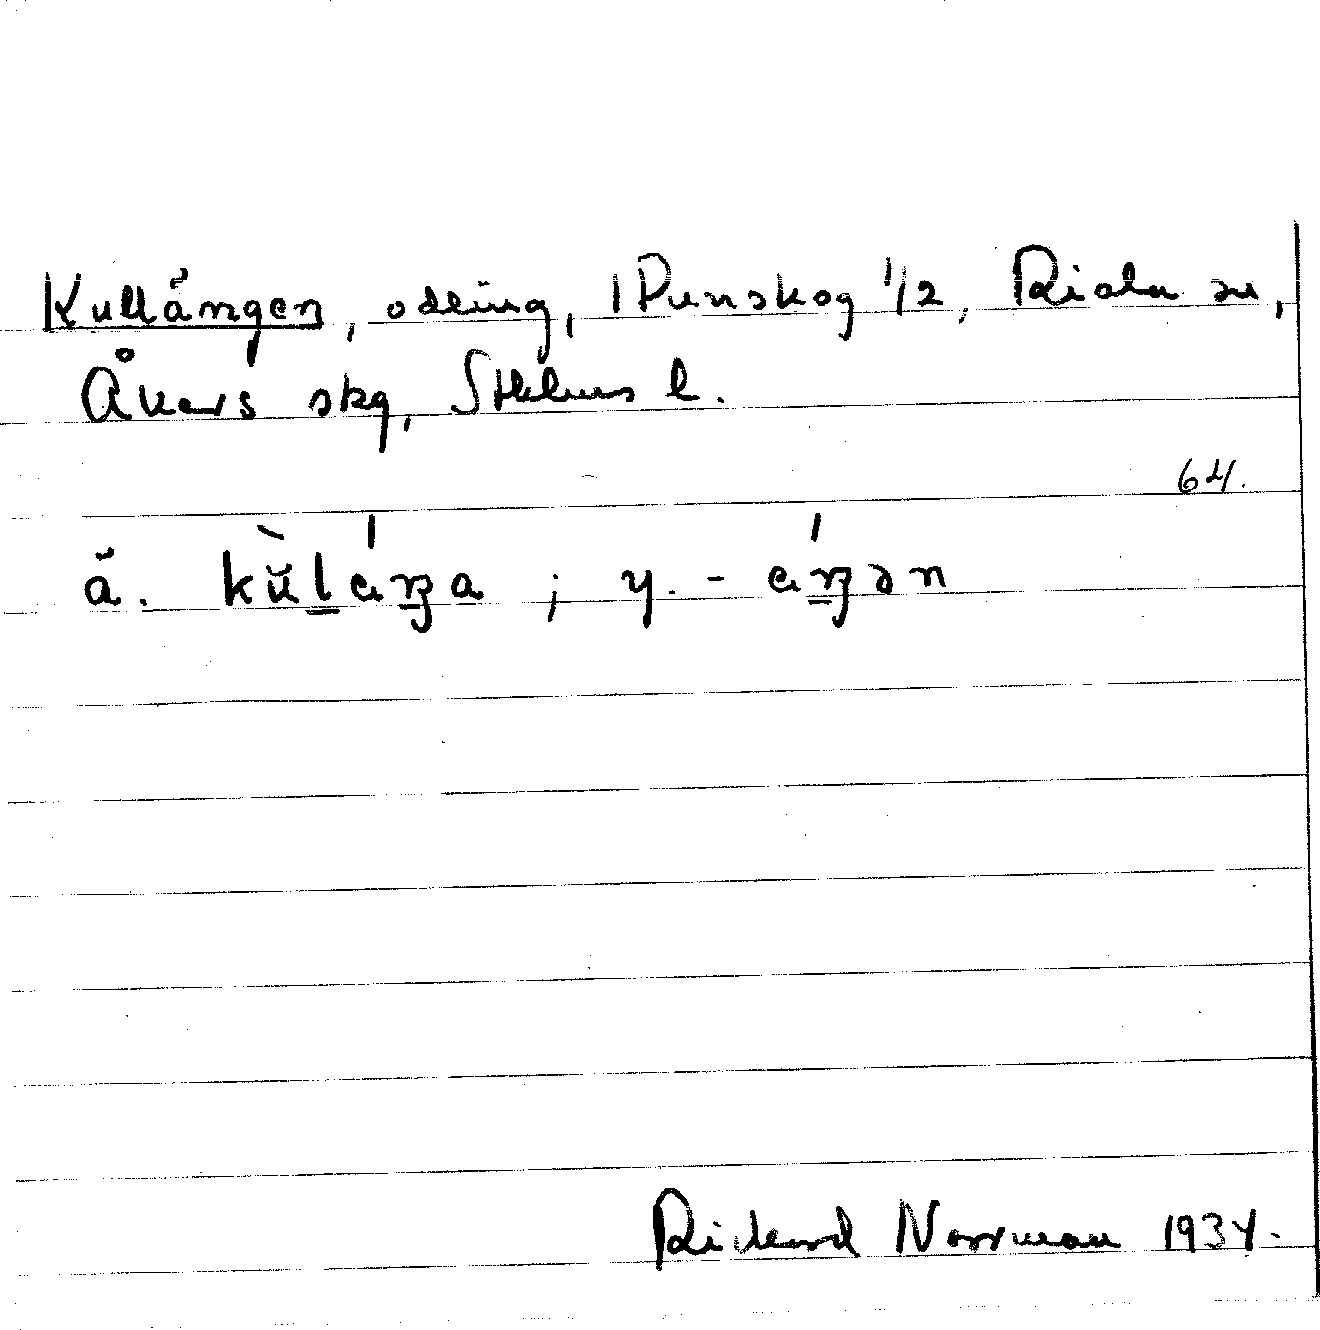 Kullängen, odling, Punskog 1/2, Riala sn,
Åkers skg, Sthlms l.
64.
ä. kùláŋa ; y. - áŋən
Rickard Norrman 1934.